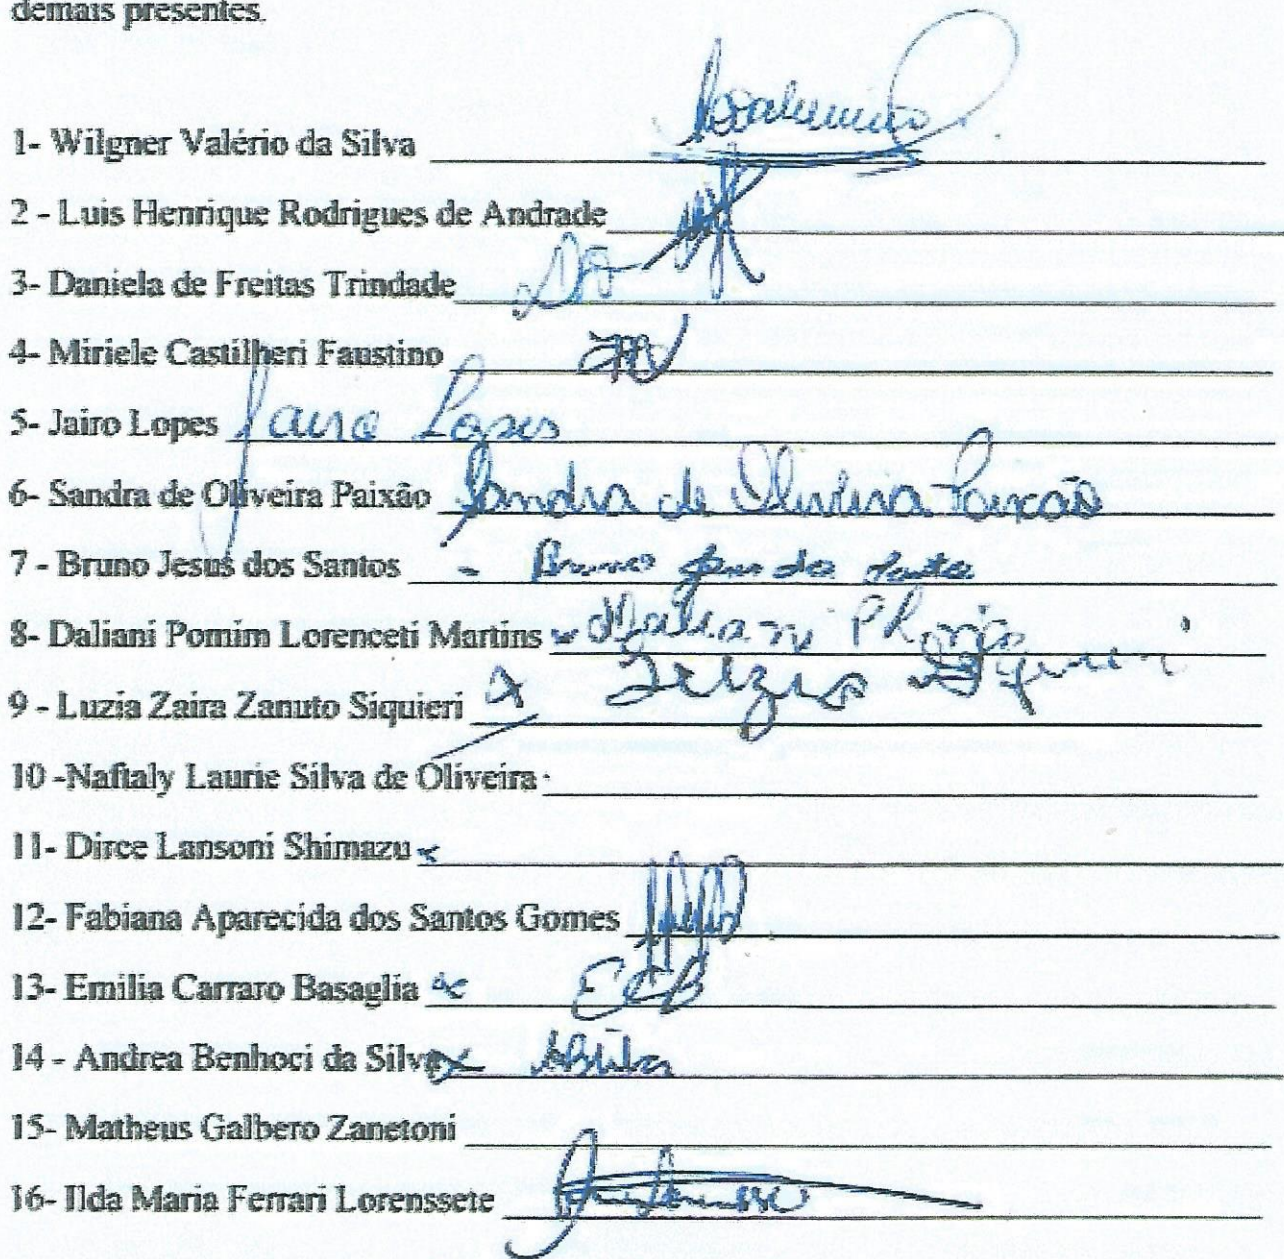 demais presentes.
1- Wilgner Valério da Silva
2 - Luis Henrique Rodrigues de Andrade
3- Daniela de Freitas Trindade
4- Miriele Castilheri Faustino
5- Jairo Lopes Jairo Lopes
6- Sandra de Oliveira Paixão Sandra de Oliveira Paixão
7 - Bruno Jesus dos Santos - Bruno Jesus dos Santos
8- Daliani Pomim Lorenceti Martins Daliani
9 - Luzia Zaira Zanuto Siquieri x Luzia Siquieri
10 -Naftaly Laurie Silva de Oliveira
11- Dirce Lansoni Shimazu x
12- Fabiana Aparecida dos Santos Gomes
13- Emilia Carraro Basaglia x ECB
14 - Andrea Benhoci da Silva x ABSilva
15- Matheus Galbero Zanetoni
16- Ilda Maria Ferrari Lorenssete